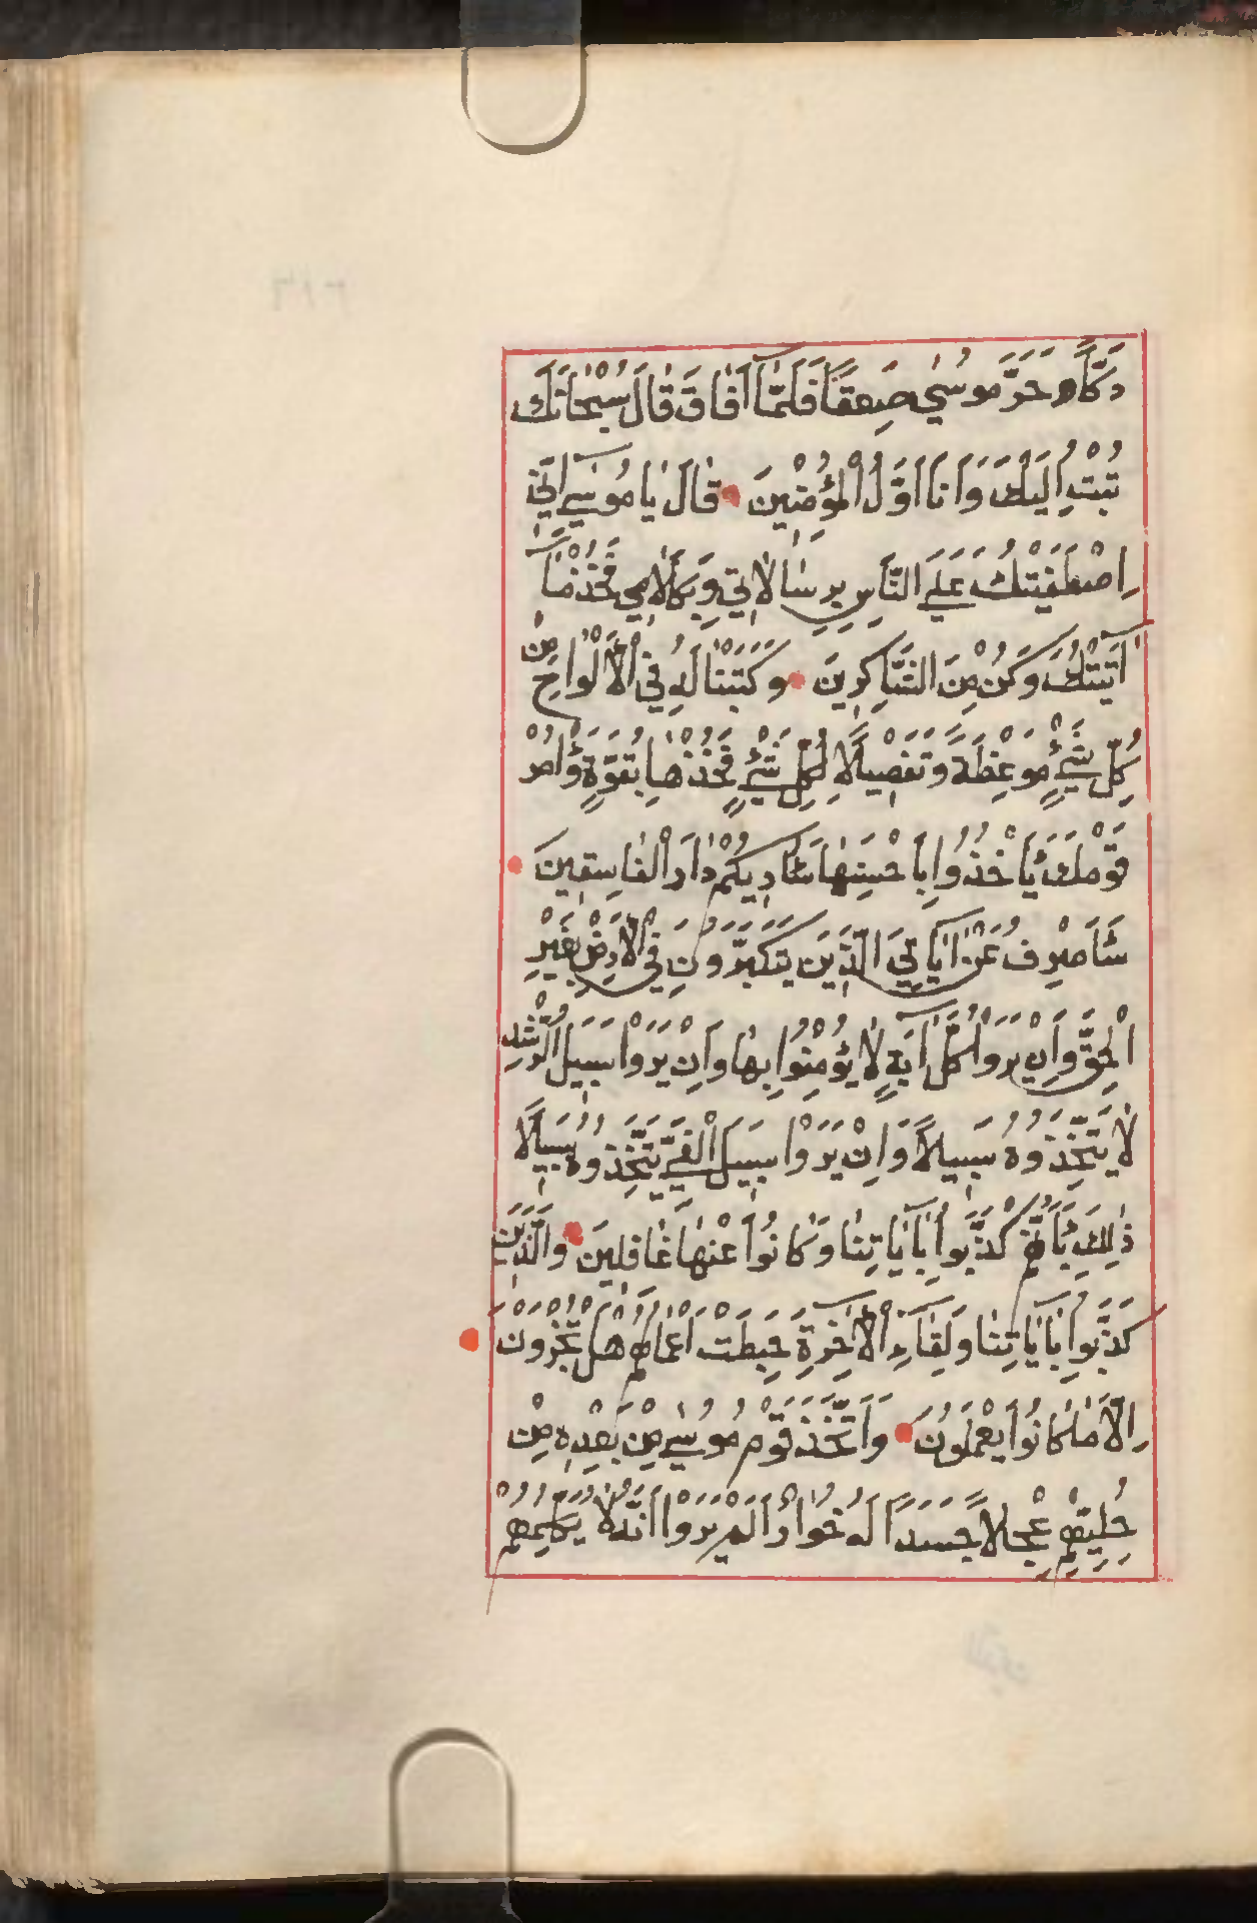 دَكًّا وَخَرَّ مُوسٰى صَعِقًا فَلَمَّآ اَفَاقَ قَالَ سُبْحَانَكَ
تُبْتُ اِلَيْكَ وَاَنَا اَوَّلُ الْمُؤْمِنِينَ قَالَ يَا مُوسٰى اِنِّي
اِصْطَفَيْتُكَ عَلَى النَّاسِ بِرِسَالَاتِي وَبِكَلَامِي فَخُذْ مَآ
اٰتَيْتُكَ وَكُنْ مِنَ الشَّاكِرِينَ وَكَتَبْنَا لَهُ فِي الْاَلْوَاحِ مِنْ
كُلِّ شَيْءٍ مَوْعِظَةً وَتَفْصِيلًا لِكُلِّ شَيْءٍ فَخُذْهَا بِقُوَّةٍ وَأْمُرْ
قَوْمَكَ يَأْخُذُوا بِاَحْسَنِهَا سَاُورِيكُمْ دَارَ الْفَاسِقِينَ
سَاَصْرِفُ عَنْ اٰيَاتِيَ الَّذِينَ يَتَكَبَّرُونَ فِي الْاَرْضِ بِغَيْرِ
الْحَقِّ وَاِنْ يَرَوْا كُلَّ اٰيَةٍ لَا يُؤْمِنُوا بِهَا وَاِنْ يَرَوْا سَبِيلَ الرُّشْدِ
لَا يَتَّخِذُوهُ سَبِيلًا وَاِنْ يَرَوْا سَبِيلَ الْغَيِّ يَتَّخِذُوهُ سَبِيلًا
ذٰلِكَ بِاَنَّهُمْ كَذَّبُوا بِاٰيَاتِنَا وَكَانُوا عَنْهَا غَافِلِينَ وَالَّذِينَ
كَذَّبُوا بِاٰيَاتِنَا وَلِقَآءِ الْاٰخِرَةِ حَبِطَتْ اَعْمَالُهُمْ هَلْ يُجْزَوْنَ
اِلَّا مَا كَانُوا يَعْمَلُونَ وَاتَّخَذَ قَوْمُ مُوسٰى مِنْ بَعْدِهِ مِنْ
حُلِيِّهِمْ عِجْلًا جَسَدًا لَهُ خُوَارٌ اَلَمْ يَرَوْا اَنَّهُ لَا يُكَلِّمُهُمْ